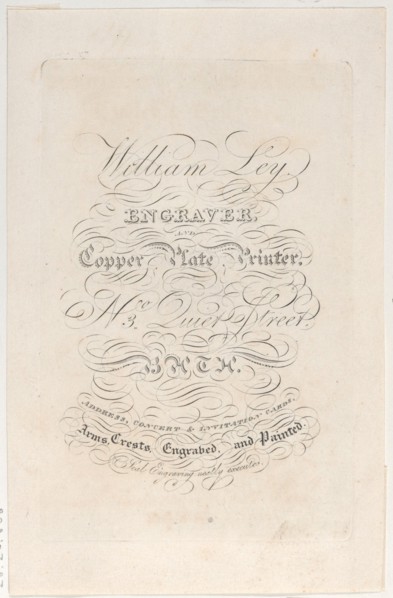 William Ley.
ENGRAVER,
AND
Copper Plate Printer.
3, Quiet Street.
BATH.
ADDRESS, CONCERT & INVITATION CARDS,
Arms, Crests, Engraved, and Painted.
Seal Engraving neatly executed.